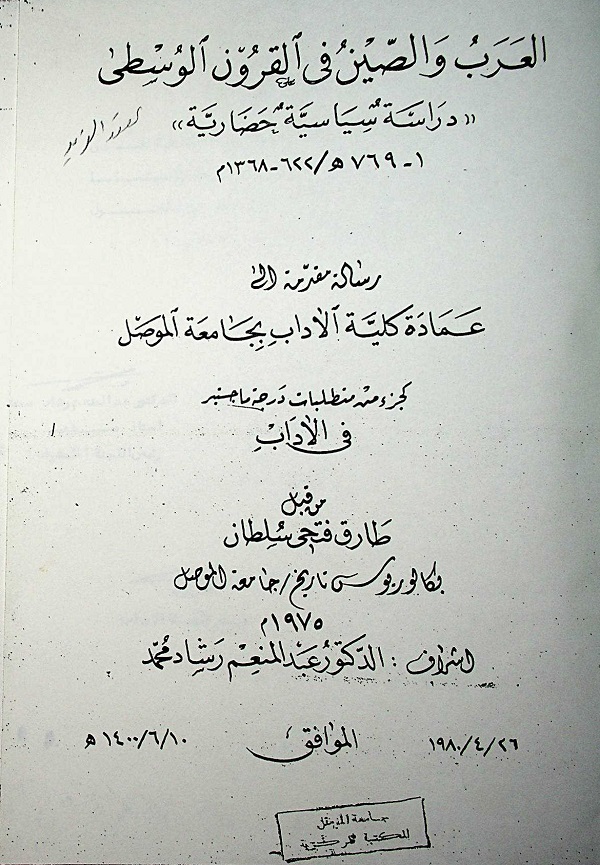 العَرَبُ وَالصّيْنُ فى القُرُوْن الوُسْطى
«دِرَاسَة سِيَاسِيَّة حَضَاريَّة»
١-٧٦٩هـ/٦٢٢-١٣٦٨م
رسالة مقدّمة الى
عَمَادَة كليَّة الآدابِ بِجَامعَة الموَصّل
كجزء من متطلبات دَرجة ماجستير
فى الآدَابْ
من قبل
طَارق فتحى سُلطان
بكالوريوس تاريخ/جامعة الموصل
١٩٧٥م
اشراف : الدّكتورُ عَبد المنعِم رَشاد محُمّد
١٩٨٠/٤/٢٦ الموافق ١٤٠٠/٦/١٠ هـ
جامعة الموصل
المكتبة المركزية